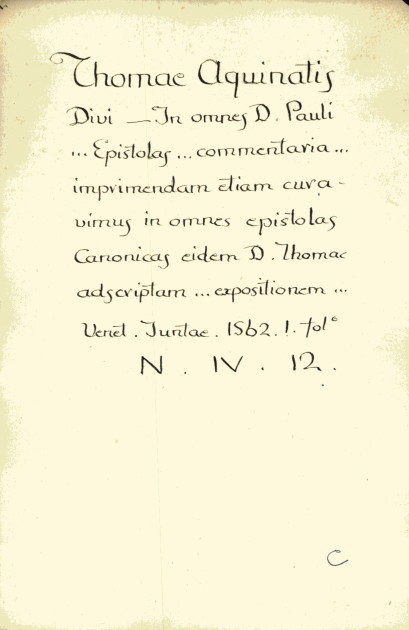 Thomae Aquinatis
Divi — In omnes D. Pauli
... Epistolas ... commentaria ...
imprimendam etiam cura-
vimus in omnes epistolas
Canonicas eidem D. Thomae
adscriptam ... expositionem ...
Venet. Juntae. 1562. 1. fol°
N. IV. 12.
C